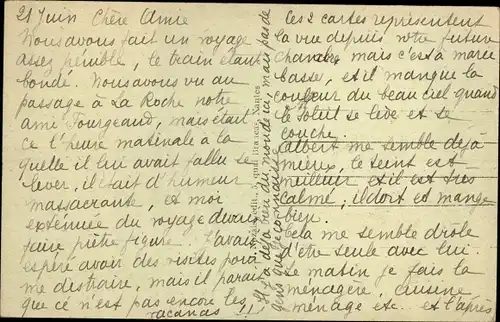 21 Juin Chère Amie
Nous avons fait un voyage
assez pénible, le train étant
bondé. Nous avons vu au
passage à La Roche notre
ami Fourgeaud, mais était
ce l'heure matinale à la
quelle il lui avait fallu se
lever, il était d'humeur
massacrante, et moi
exténuée du voyage devais
faire piètre figure. J'avais
espéré avoir des visites pour
me distraire, mais il parait
que ce n'est pas encore les
vacances !!
Il y a déjà bien du monde ici, mais pas de
gens que je connaisse
Nantes
ces 2 cartes représentent
la vue depuis votre future
chambre mais c'est à marée
basse, et il manque la
couleur du beau ciel quand
le soleil se lève et se
couche.
Albert me semble déjà
mieux, le teint est
meilleur et il est très
calme, il doit et mange
bien.
Cela me semble drôle
d'être seule avec lui.
Le matin je fais la
ménagère, cuisine
ménage etc.. et l'après